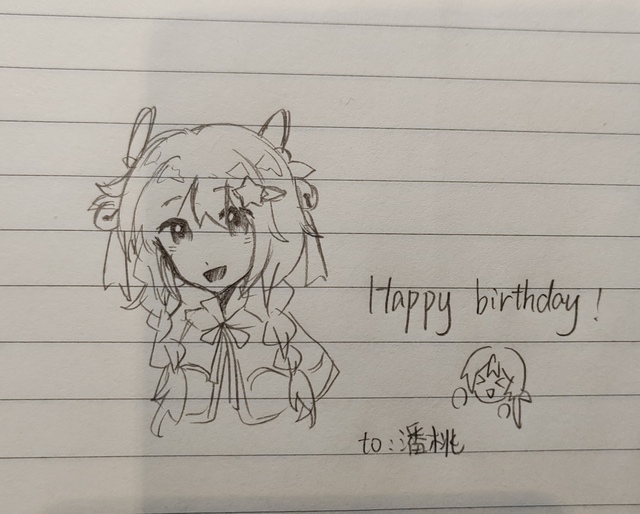 Happy birthday!
to:潘桃